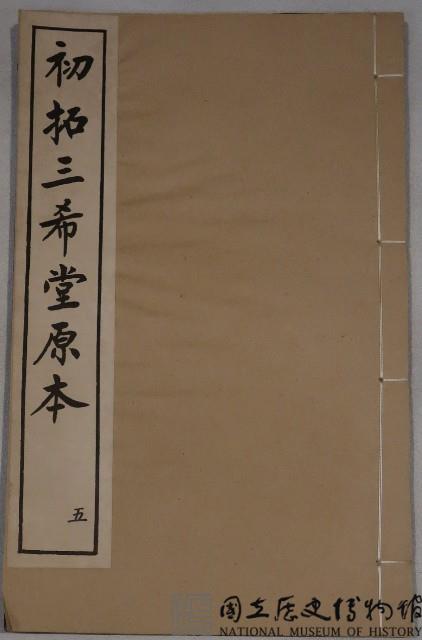 初拓三希堂原本
五
國立歷史博物館
NATIONAL MUSEUM OF HISTORY